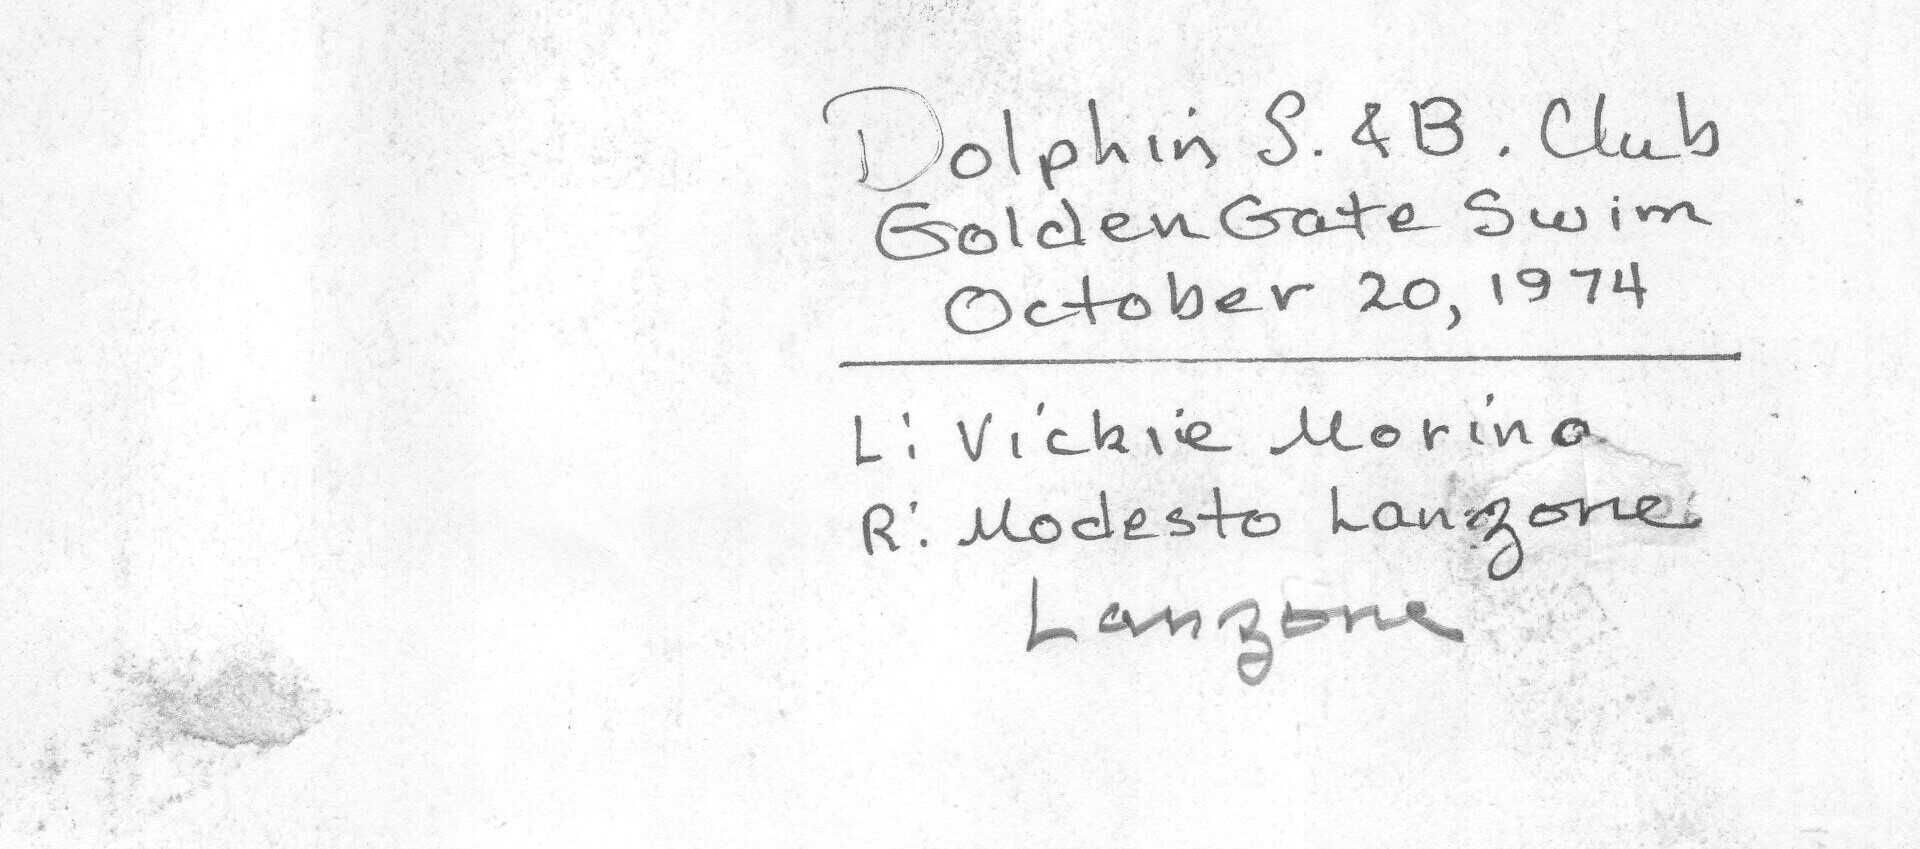 Dolphin S. & B. Club
Golden Gate Swim
October 20, 1974
L: Vickie Morino
R: Modesto Lanzone
Lanzone